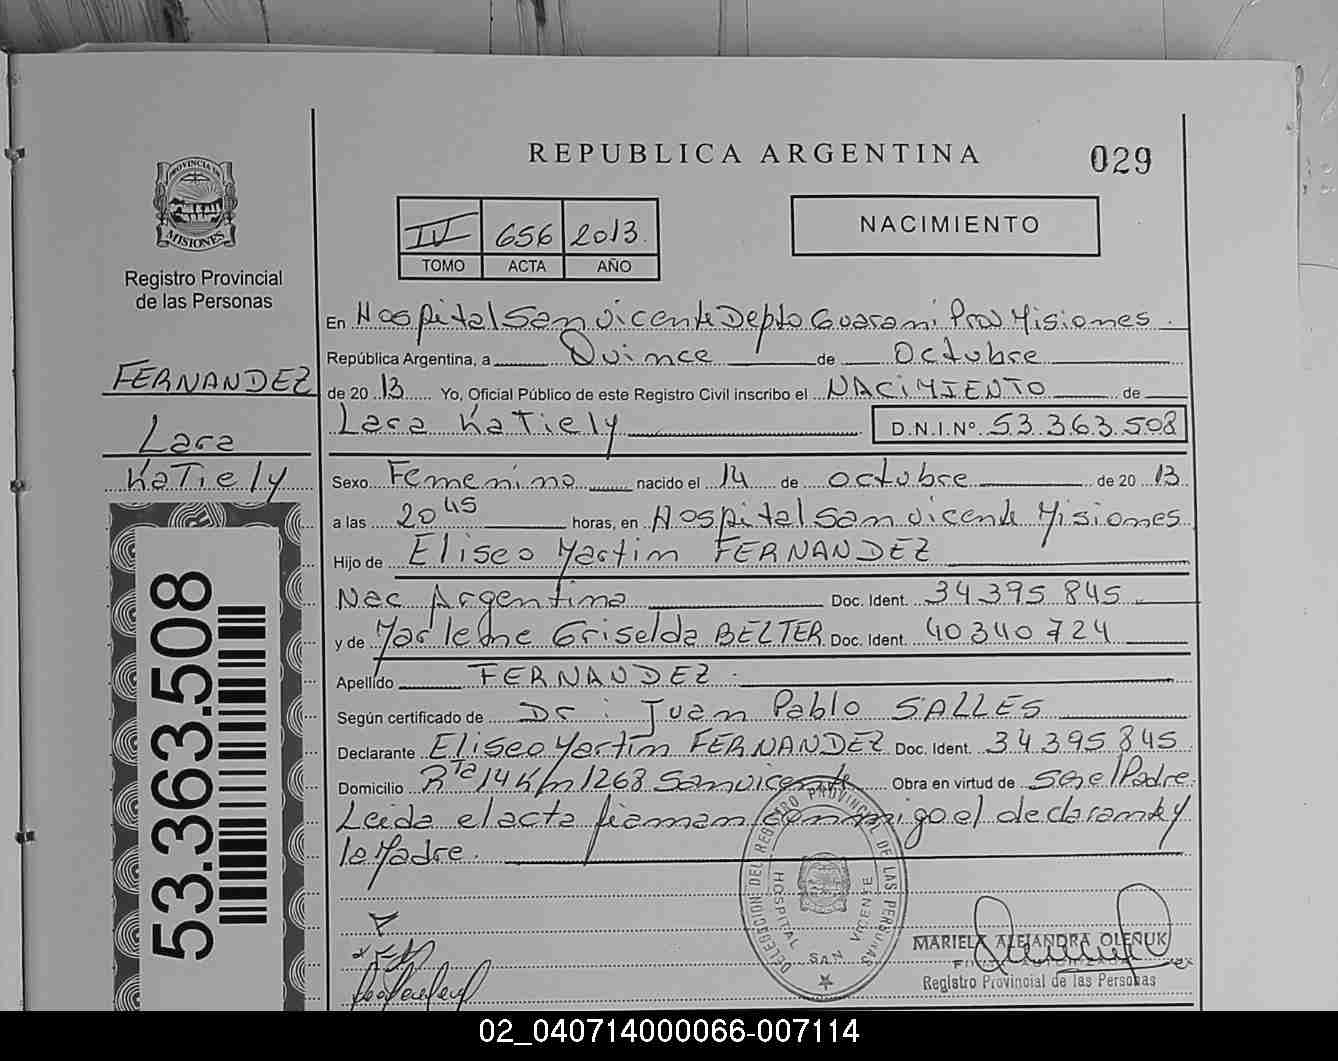 REPUBLICA ARGENTINA
029
PROVINCIA DE
MISIONES
Registro Provincial
de las Personas
IV 656 2013
TOMO ACTA AÑO
NACIMIENTO
FERNANDEZ
Lara
Katiely
53.363.508
En Hospital San Vicente Depto Guarani Prov Misiones
República Argentina, a Quince de Octubre
de 2013 Yo, Oficial Público de este Registro Civil inscribo el NACIMIENTO de
Lara Katiely D.N.I.Nº 53.363.508
Sexo Femenino nacido el 14 de octubre de 2013
a las 20 45 horas, en Hospital San Vicente Misiones
Hijo de Eliseo Martin FERNANDEZ
Nac Argentina Doc. Ident. 34.395.845
y de Marlene Griselda BELTER Doc. Ident. 40.340.724
Apellido FERNANDEZ
Según certificado de Dr: Juan Pablo SALLES
Declarante Eliseo Martin FERNANDEZ Doc. Ident. 34.395.845
Domicilio Rta 14 Km 1268 San Vicente Obra en virtud de Ser el Padre
Leida el acta firman conmigo el declarante y
la Madre.
DELEGACION DEL REGISTRO PROVINCIAL DE LAS PERSONAS
HOSPITAL SAN VICENTE
MARIELA ALEJANDRA OLEÑUK
Registro Provincial de las Personas
02_040714000066-007114